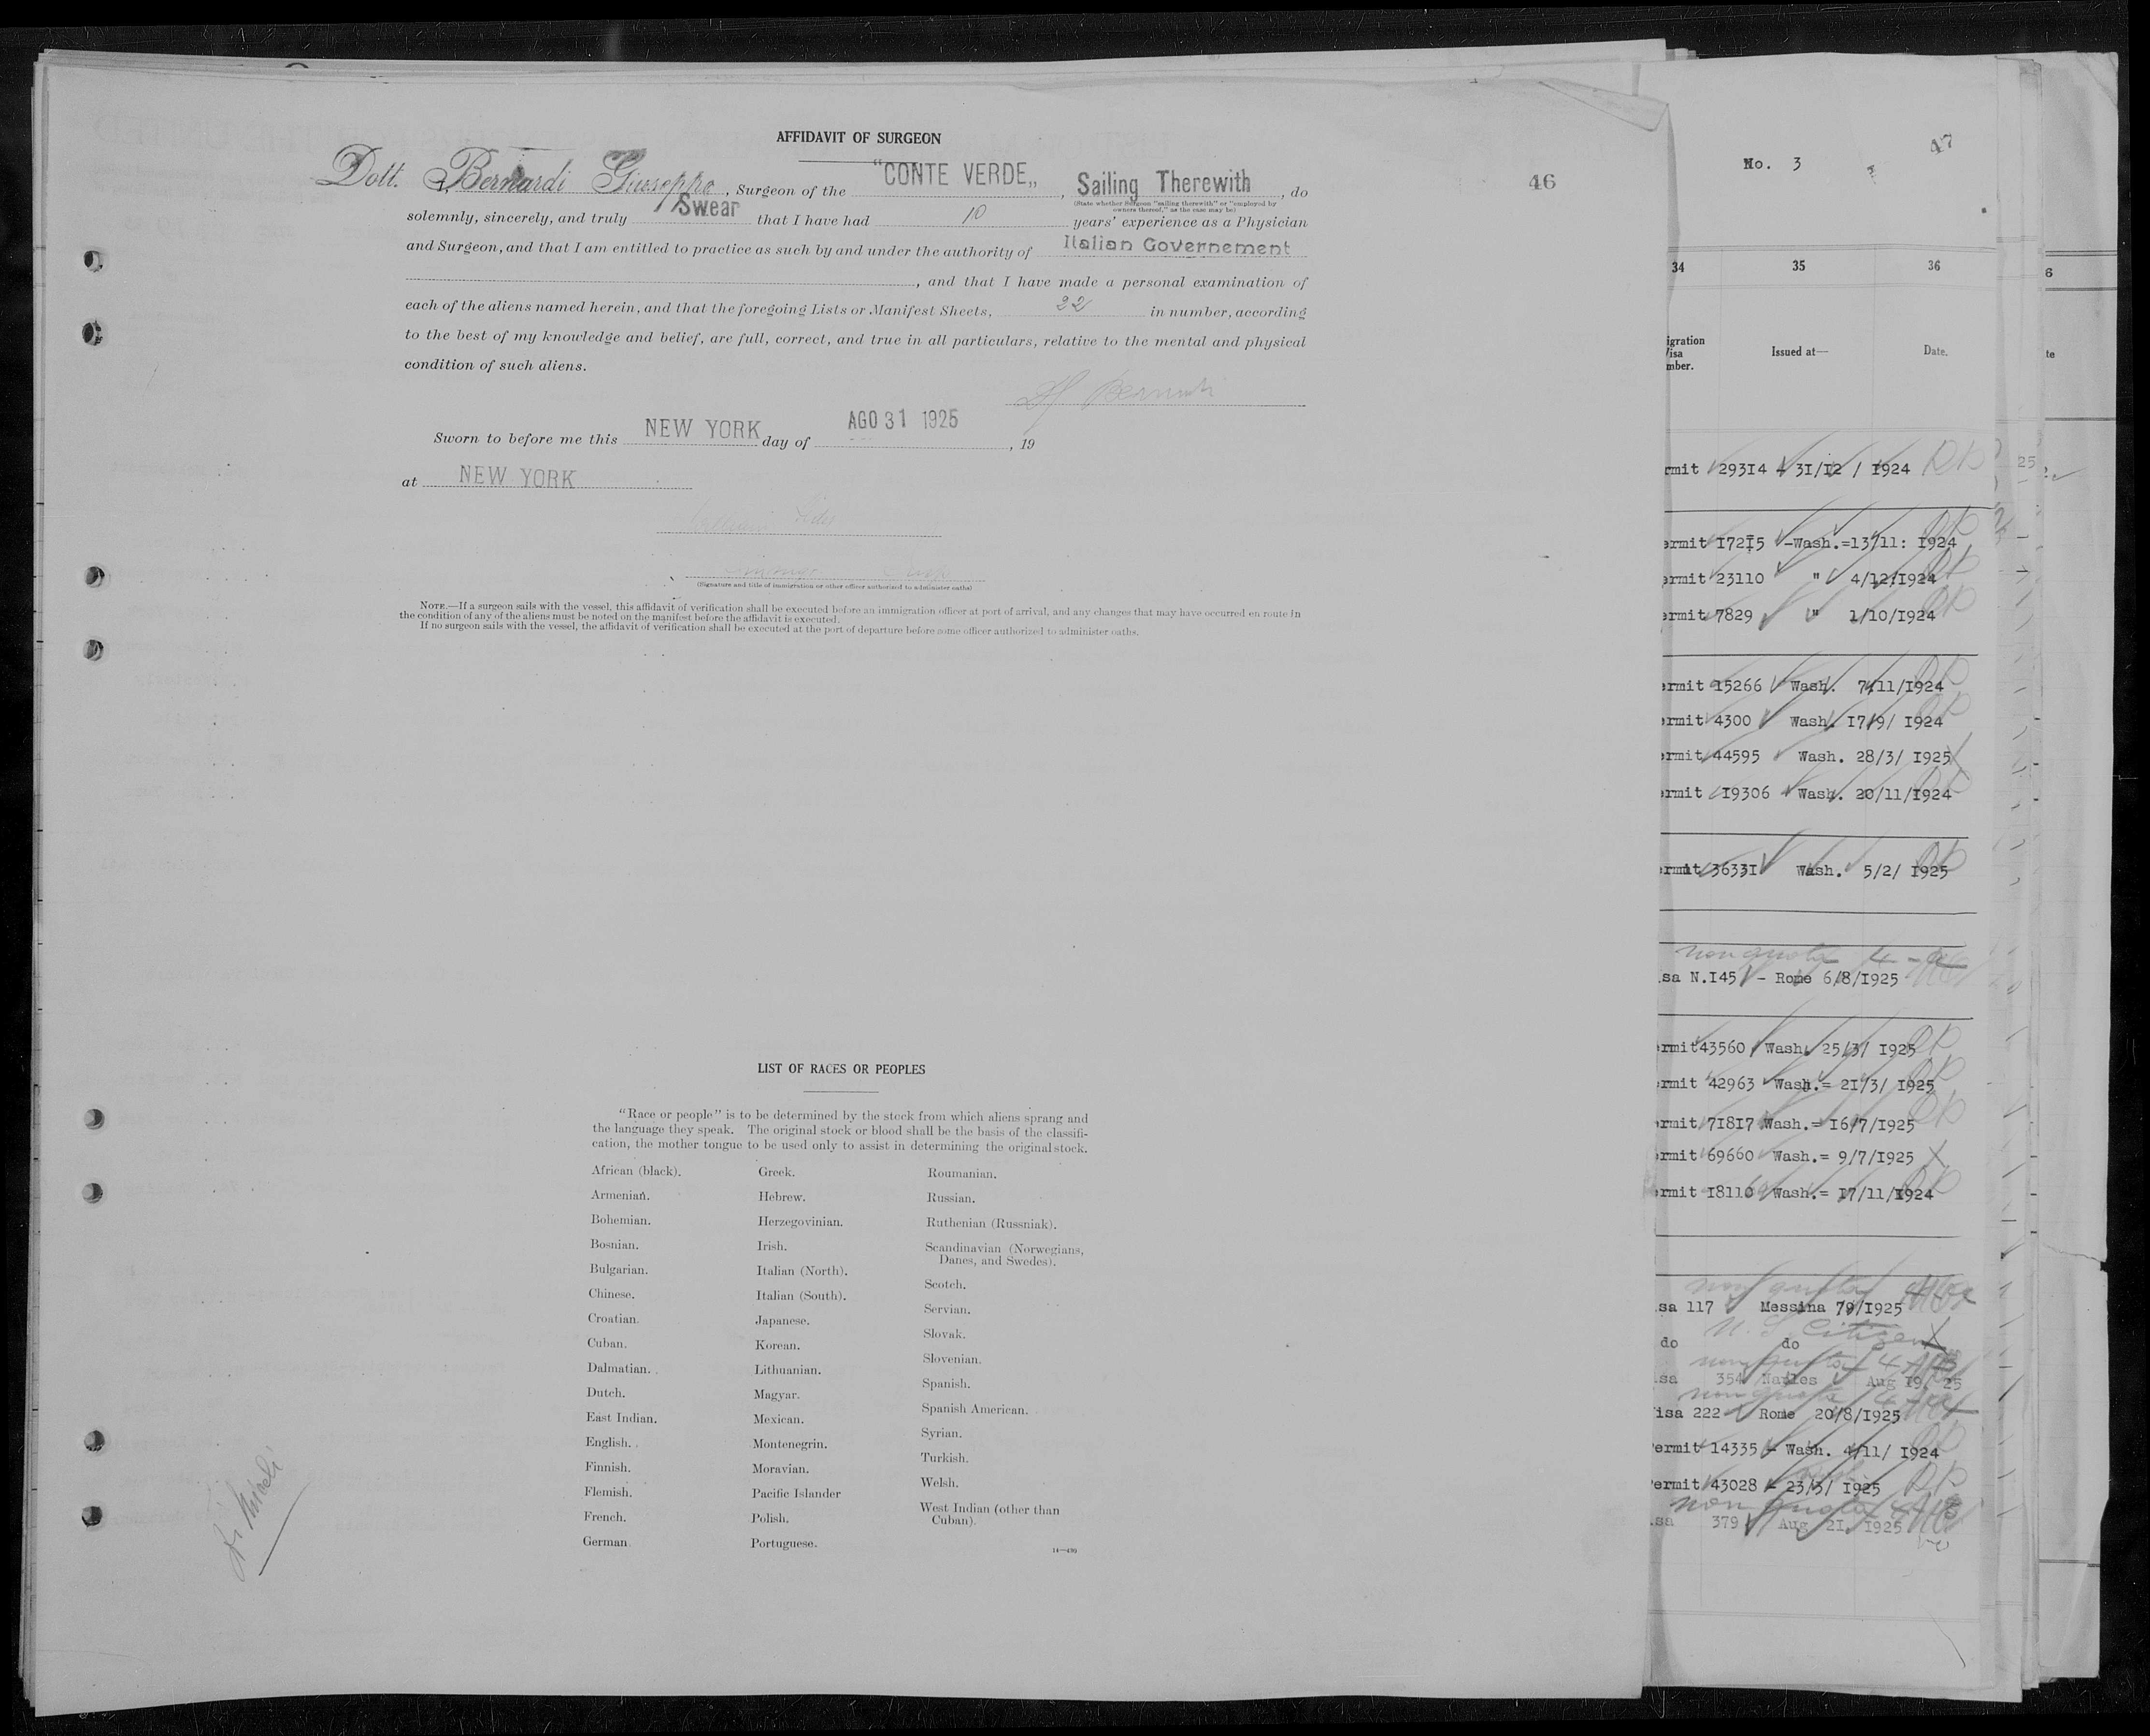 AFFIDAVIT OF SURGEON
Dott. Bernardi Giuseppe, Surgeon of the "CONTE VERDE„, Sailing Therewith, do
(State whether Surgeon "sailing therewith" or "employed by
owners thereof," as the case may be)
solemnly, sincerely, and truly Swear that I have had 10 years' experience as a Physician
and Surgeon, and that I am entitled to practice as such by and under the authority of Italian Governement
, and that I have made a personal examination of
each of the aliens named herein, and that the foregoing Lists or Manifest Sheets, 22 in number, according
to the best of my knowledge and belief, are full, correct, and true in all particulars, relative to the mental and physical
condition of such aliens.
Sworn to before me this NEW YORK day of AGO 31 1925, 19
at NEW YORK
(Signature and title of immigration or other officer authorized to administer oaths)
NOTE.—If a surgeon sails with the vessel, this affidavit of verification shall be executed before an immigration officer at port of arrival, and any changes that may have occurred en route in
the condition of any of the aliens must be noted on the manifest before the affidavit is executed.
If no surgeon sails with the vessel, the affidavit of verification shall be executed at the port of departure before some officer authorized to administer oaths.
46
LIST OF RACES OR PEOPLES
"Race or people" is to be determined by the stock from which aliens sprang and
the language they speak. The original stock or blood shall be the basis of the classifi-
cation, the mother tongue to be used only to assist in determining the original stock.
African (black).
Armenian.
Bohemian.
Bosnian.
Bulgarian.
Chinese.
Croatian.
Cuban.
Dalmatian.
Dutch.
East Indian.
English.
Finnish.
Flemish.
French.
German.
Greek.
Hebrew.
Herzegovinian.
Irish.
Italian (North).
Italian (South).
Japanese.
Korean.
Lithuanian.
Magyar.
Mexican.
Montenegrin.
Moravian.
Pacific Islander
Polish.
Portuguese.
Roumanian.
Russian.
Ruthenian (Russniak).
Scandinavian (Norwegians,
Danes, and Swedes).
Scotch.
Servian.
Slovak.
Slovenian.
Spanish.
Spanish American.
Syrian.
Turkish.
Welsh.
West Indian (other than
Cuban).
14—430
No. 3
47
34 35 36
igration
Visa
mber.
Issued at—
Date.
rmit 29314 - 31/12 / 1924
ermit 17215 -Wash.=13/11: 1924
ermit 23110 " 4/12/1924
ermit 7829 " 1/10/1924
ermit 15266 Wash. 7/11/1924
ermit 4300 Wash. 17/9/ 1924
ermit 44595 Wash. 28/3/ 1925
ermit 19306 Wash. 20/11/1924
ermit 36331 Wash. 5/2/ 1925
non quota
sa N.145 - Rome 6/8/1925
ermit 43560 Wash. 25/3/ 1925
ermit 42963 Wash.= 21/3/ 1925
ermit 71817 Wash.= 16/7/1925
ermit 69660 Wash.= 9/7/1925
ermit 18110 Wash.= 17/11/1924
non quota
sa 117 Messina 7/9/1925
U. S. Citizen
do do
non quota
sa 354 Naples Aug 19, 25
non quota
isa 222 Rome 20/8/1925
ermit 14335 - Wash. 4/11/ 1924
ermit 43028 - 23/3/ 1925
non quota
sa 379 Aug 21, 1925
6
te
25